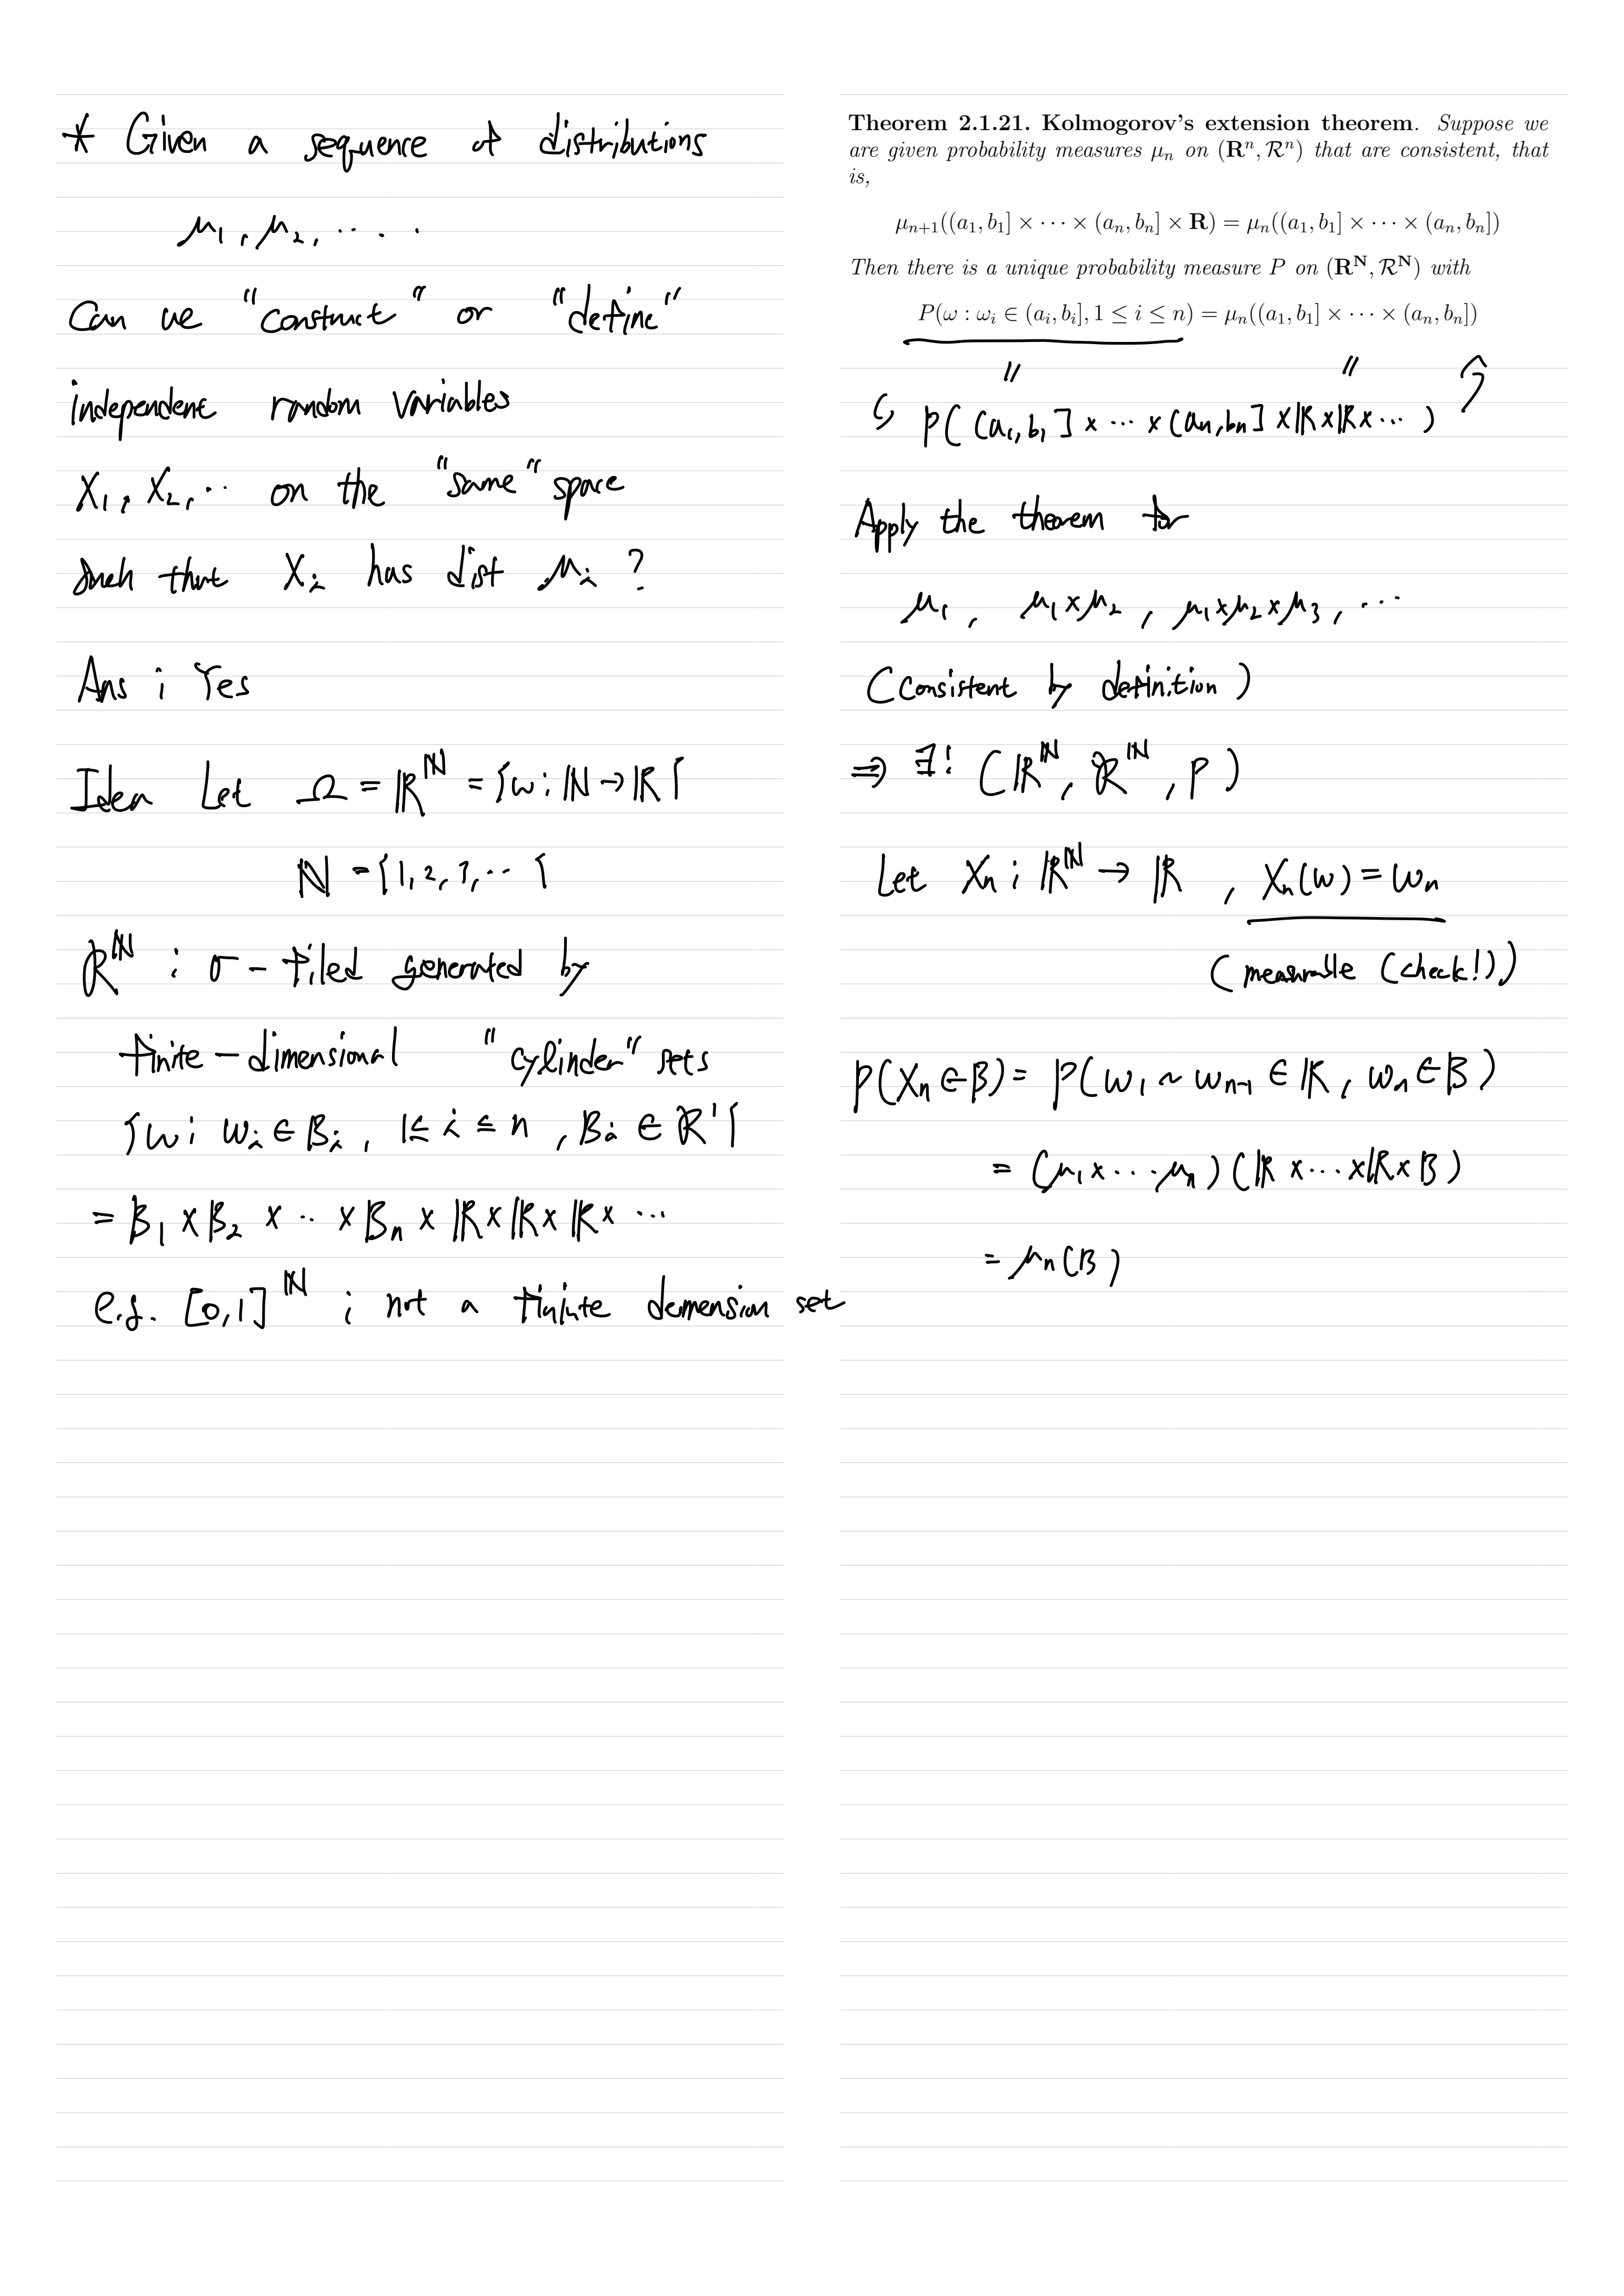 * Given a sequence of distributions
μ₁, μ₂, ‧‧‧ ‧
Can we "construct" or "define"
independent random variables
X₁, X₂, ‧‧ on the "same" space
such that Xᵢ has dist μᵢ ?
Ans : Yes
Idea Let Ω = ℝ^ℕ = {ω : ℕ → ℝ}
ℕ = {1, 2, 3, ‧‧ }
𝓡^ℕ : σ - filed generated by
finite - dimensional "cylinder" sets
{ω : ωᵢ ∈ Bᵢ, 1 ≤ i ≤ n, Bᵢ ∈ 𝓡¹}
= B₁ × B₂ × ‧‧ × Bₙ × ℝ × ℝ × ℝ × ⋯
e.g. [0,1]^ℕ : not a fininte demension set
Theorem 2.1.21. Kolmogorov's extension theorem. Suppose we
are given probability measures μₙ on (Rⁿ, 𝓡ⁿ) that are consistent, that
is,
μₙ₊₁((a₁, b₁] × ⋯ × (aₙ, bₙ] × R) = μₙ((a₁, b₁] × ⋯ × (aₙ, bₙ])
Then there is a unique probability measure P on (R^N, 𝓡^N) with
P(ω : ωᵢ ∈ (aᵢ, bᵢ], 1 ≤ i ≤ n) = μₙ((a₁, b₁] × ⋯ × (aₙ, bₙ])
P((a₁, b₁] × ⋯ × (aₙ, bₙ] × ℝ × ℝ × ⋯ )
Apply the theorem for
μ₁, μ₁×μ₂, μ₁×μ₂×μ₃, ⋯
(consistent by definition)
⇒ ∃! (ℝ^ℕ, 𝓡^ℕ, P)
Let Xₙ : ℝ^ℕ → ℝ, Xₙ(ω) = ωₙ
(measurable (check!))
P(Xₙ ∈ B) = P(ω₁ ~ ωₙ₋₁ ∈ ℝ, ωₙ ∈ B)
= (μ₁ × ⋯ μₙ)(ℝ × ⋯ × ℝ × B)
= μₙ(B)